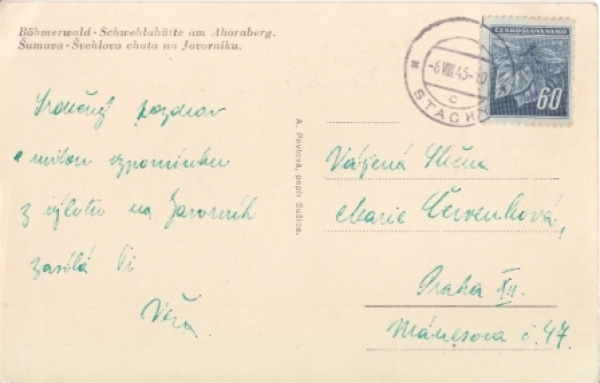 Böhmerwald - Schwehlahütte am Ahornberg.
Šumava - Švehlova chata na Javorníku.
Srdečný pozdrav
a milou vzpomínku
z výletu na Javorník
zasílá Ti
Věra.
A. Pavlová, papír Sušice.
ČESKOSLOVENSKO
60
-6.VIII.45-
c
STACH
Vážená Slečna
Marie Červenková,
Praha XII.
Mánesova č. 47.